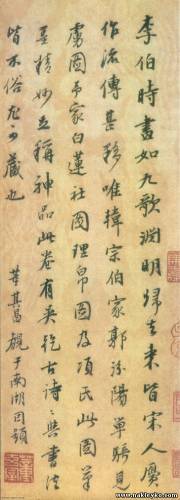 李伯時畫如九歌淵明歸去來皆宋人贋
作流傳甚 唯韓宗伯家郭汾陽單騎見
虜圖 家白蓮社圖理帛圖及項氏此圖筆
墨精妙 稱神品此卷有吳 古詩々與書法
皆不俗尤可藏也
董其昌觀于南湖因題
www.nakjryko.com